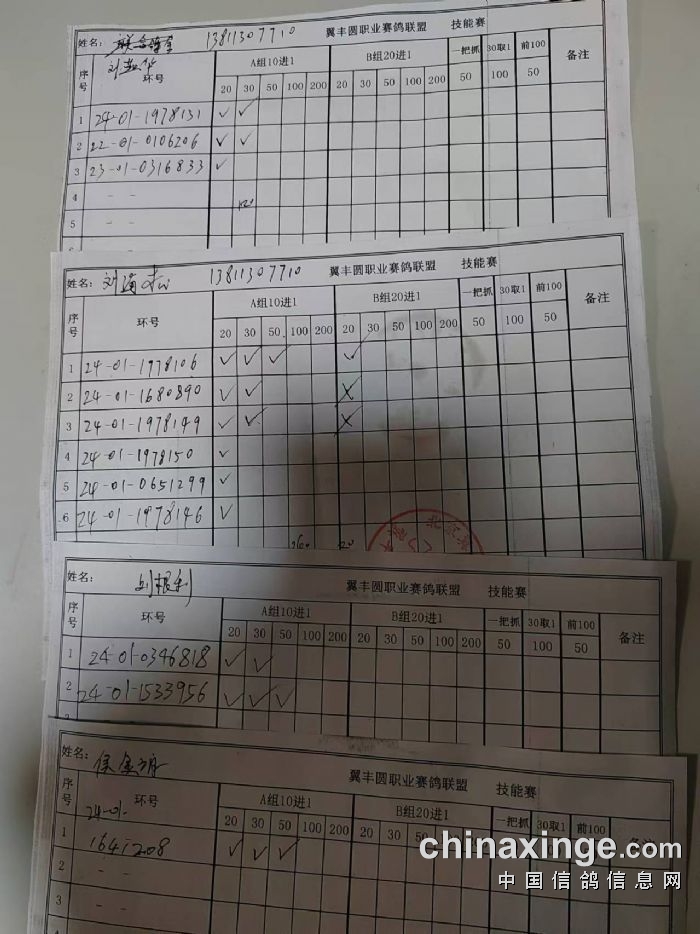 姓名: 联合鸽舍 13811307710 翼丰圆职业赛鸽联盟 技能赛
序号 环号 A组10进1 B组20进1 一把抓 30取1 前100 备注
20 30 50 100 200 20 30 50 100 200 50 100 50
1 24-01-1978131 ✓ ✓
2 22-01-0106206 ✓ ✓
3 23-01-0316833 ✓
4 - -
5 - -
姓名: 13811307710 翼丰圆职业赛鸽联盟 技能赛
序号 环号 A组10进1 B组20进1 一把抓 30取1 前100 备注
20 30 50 100 200 20 30 50 100 200 50 100 50
1 24-01-1978106 ✓ ✓ ✓ ✓
2 24-01-1680890 ✓ ✓ ✗
3 24-01-1978149 ✓ ✓ ✗
4 24-01-1978150 ✓
5 24-01-0651299 ✓
6 24-01-1978146 ✓
姓名: 刘根利 翼丰圆职业赛鸽联盟 技能赛
序号 环号 A组10进1 B组20进1 一把抓 30取1 前100 备注
20 30 50 100 200 20 30 50 100 200 50 100 50
1 24-01-0346818 ✓ ✓
2 24-01-1533956 ✓ ✓ ✓
姓名: 翼丰圆职业赛鸽联盟 技能赛
序号 环号 A组10进1 B组20进1 一把抓 30取1 前100 备注
20 30 50 100 200 20 30 50
24-01-
1 1641208 ✓ ✓ ✓
2 - -
3 - -
4
chinaxinge.com
中国信鸽信息网